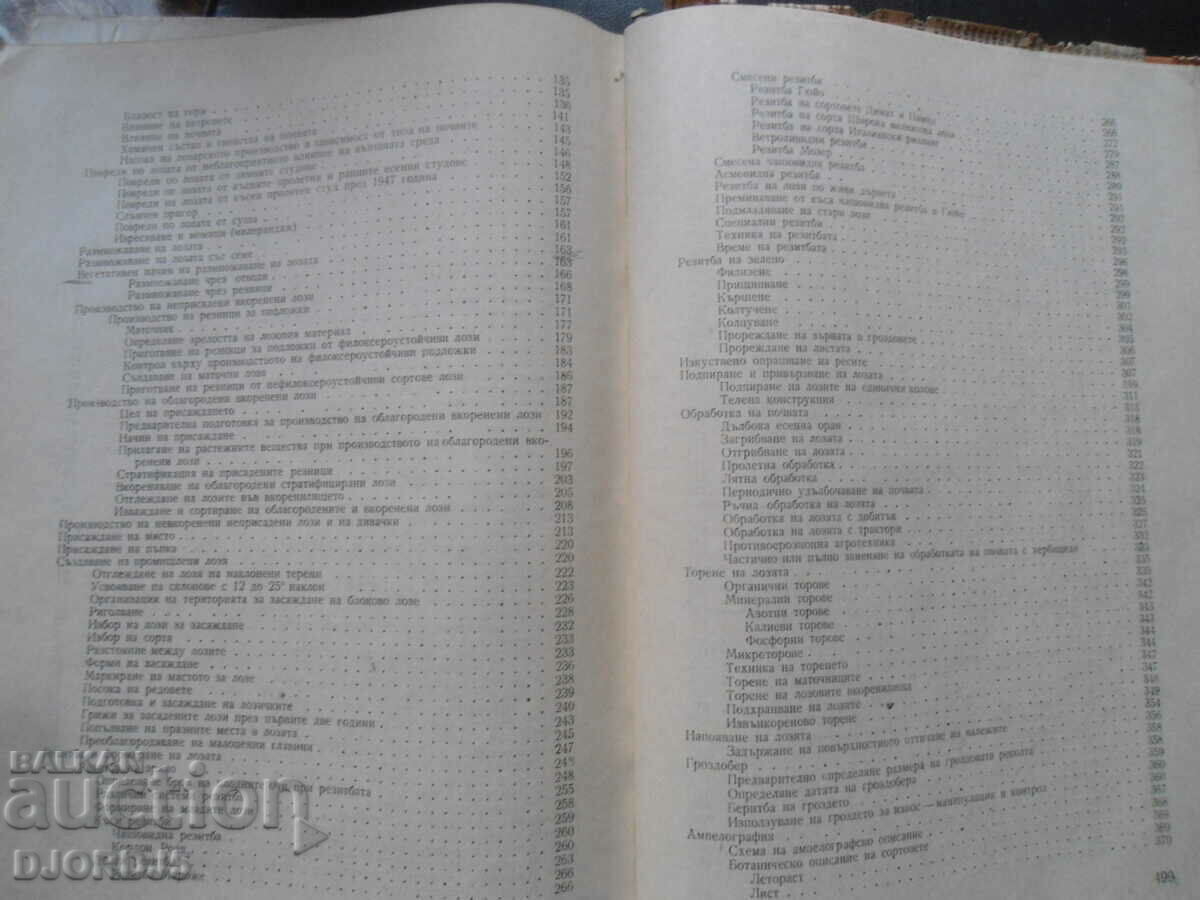 Близост на гори 135
Влияние на ветровете 135
Влияние на почвата 136
Химичен състав и свойства на почвата 141
Насока на лозарското производство в зависимост от типа на почвите 143
Повреди по лозата от неблагоприятното влияние на външната среда 145
Повреди по лозата от зимните студове 146
Повреди по лозата от късните пролетни и ранните есенни студове 148
Повреди на лозата от късен пролетен студ през 1947 година 152
Слънчев пригор 156
Повреди по лозата от суша 157
Изресяване и милиранди (милерандаж) 157
Размножаване на лозата 161
Размножаване на лозата със семе 161
Вегетативен начин на размножаване на лозата 163
Размножаване чрез отводи 163
Размножаване чрез резници 166
Производство на неприсадени вкоренени лози 168
Производство на резници за подложки 171
Маточник 171
Определяне зрелостта на лозовия материал 177
Приготвяне на резници за подложки от филоксероустойчиви лози 179
Контрол върху производството на филоксероустойчиви подложки 183
Създаване на маточни лозя 184
Приготвяне на резници от нефилоксероустойчиви сортове лози 186
Производство на облагородени вкоренени лози 187
Цел на присаждането 187
Предварителна подготовка за производство на облагородени вкоренени лози 192
Начин на присаждане 194
Прилагане на растежните вещества при производството на облагородени вко-
ренени лози 196
Стратификация на присадените резници 197
Вкореняване на облагородени стратифицирани лози 203
Отглеждане на лозите във вкоренилището 205
Изваждане и сортиране на облагородените и вкоренени лози 208
Производство на невкоренени неприсадени лози и на дивачки 213
Присаждане на място 213
Присаждане на пъпка 220
Създаване на промишлени лозя 220
Отглеждане на лозя на наклонени терени 222
Усвояване на склонове с 12 до 25° наклон 223
Организация на територията за засаждане на блоково лозе 226
Риголване 228
Избор на лози за засаждане 232
Избор на сорта 233
Разстояние между лозите 233
Форми на засаждане 236
Маркиране на мястото за лозе 238
Посока на редовете 239
Подготовка и засаждане на лозичките 240
Грижи за засадените лози през първите две години 243
Попълване на празните места в лозята 245
Преоблагородяване на малоценни главини 247
на лозата 243
248
брой на плодните очи при резитбата 255
резитба 258
Формиране на младите лози 259
резитби 260
Чаповидна резитба 260
Кордон Роя 263
266
266
Смесени резитби
Резитба Гюйо
Резитба на сортовете Димят и Памид 266
Резитба на сорта Широка мелнишка лоза 266
Резитба на сорта Италиански ризлинг 272
Ветриловидни резитби 279
Резитба Мозер 287
Смесена чаповидна резитба 288
Асмовидна резитба 290
Резитба на лози по жива дървета 291
Преминаване от къса чаповидна резитба в Гюйо 291
Подмладяване на стари лози 292
Специални резитби 292
Техника на резитбата 293
Време на резитбата 295
Резитба на зелено 296
Филизене 298
Прищипване 299
Кършене 299
Колтучене 301
Колцуване 302
Прореждане на зърната в гроздовете 304
Прореждане на листата 305
Изкуствено опрашване на ресите 306
Подпиране и привързване на лозата 307
Подпиране на лозите на единични колове 310
Телена конструкция 311
Обработка на почвата 315
Дълбока есенна оран 318
Загрибване на лозята 318
Отгрибване на лозята 319
Пролетна обработка 321
Лятна обработка 322
Периодично удълбочаване на почвата 324
Ръчна обработка на лозята 325
Обработка на лозята с добитък 326
Обработка на лозята с трактори 327
Противоерозионна агротехника 332
Частично или пълно заменяне на обработката на почвата с хербициди 335
Торене на лозята 335
Органични торове 339
Минерални торове 342
Азотни торове 342
Калиеви торове 343
Фосфорни торове 344
Микроторове 344
Техника на торенето 347
Торене на маточниците 347
Торене на лозовите вкоренилища 348
Подхранване на лозите 349
Извънкореново торене 354
Напояване на лозята 356
Задържане на повърхностното оттичане на валежите 358
Гроздобер 359
Предварително определяне размера на гроздовата реколта 360
Определяне датата на гроздобера 367
Беритба на гроздето 368
Използуване на гроздето за износ — манипулация и контрол 369
Ампелография 369
Схема на ампелографско описание 370
Ботаническо описание на сортовете
Летораст
Лист
499
BALKAN auction
DJORDJ5